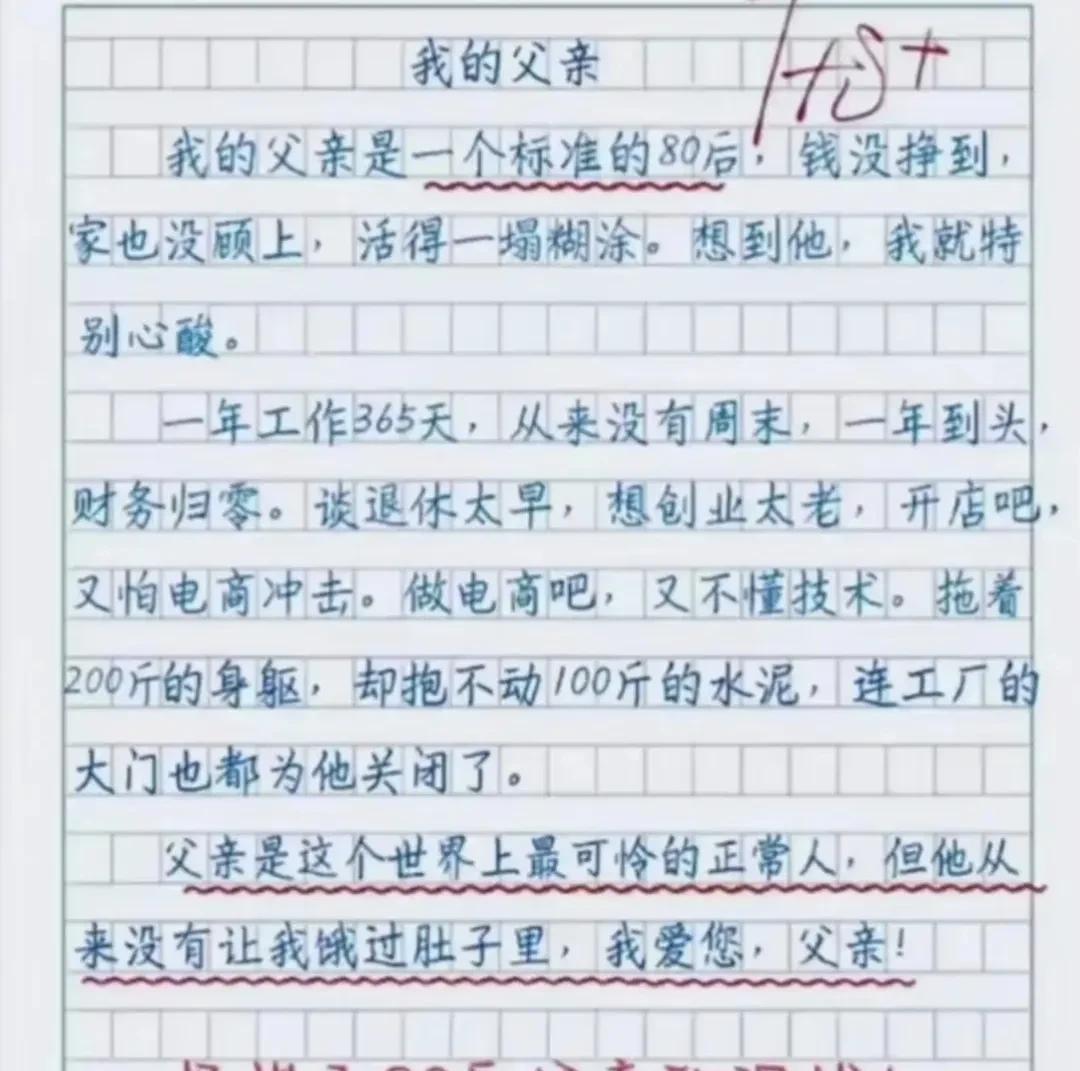 我的父亲
我的父亲是一个标准的80后，钱没挣到，
家也没顾上，活得一塌糊涂。想到他，我就特
别心酸。
一年工作365天，从来没有周末，一年到头，
财务归零。谈退休太早，想创业太老，开店吧，
又怕电商冲击。做电商吧，又不懂技术。拖着
200斤的身躯，却抱不动100斤的水泥，连工厂的
大门也都为他关闭了。
父亲是这个世界上最可怜的正常人，但他从
来没有让我饿过肚子里，我爱您，父亲！